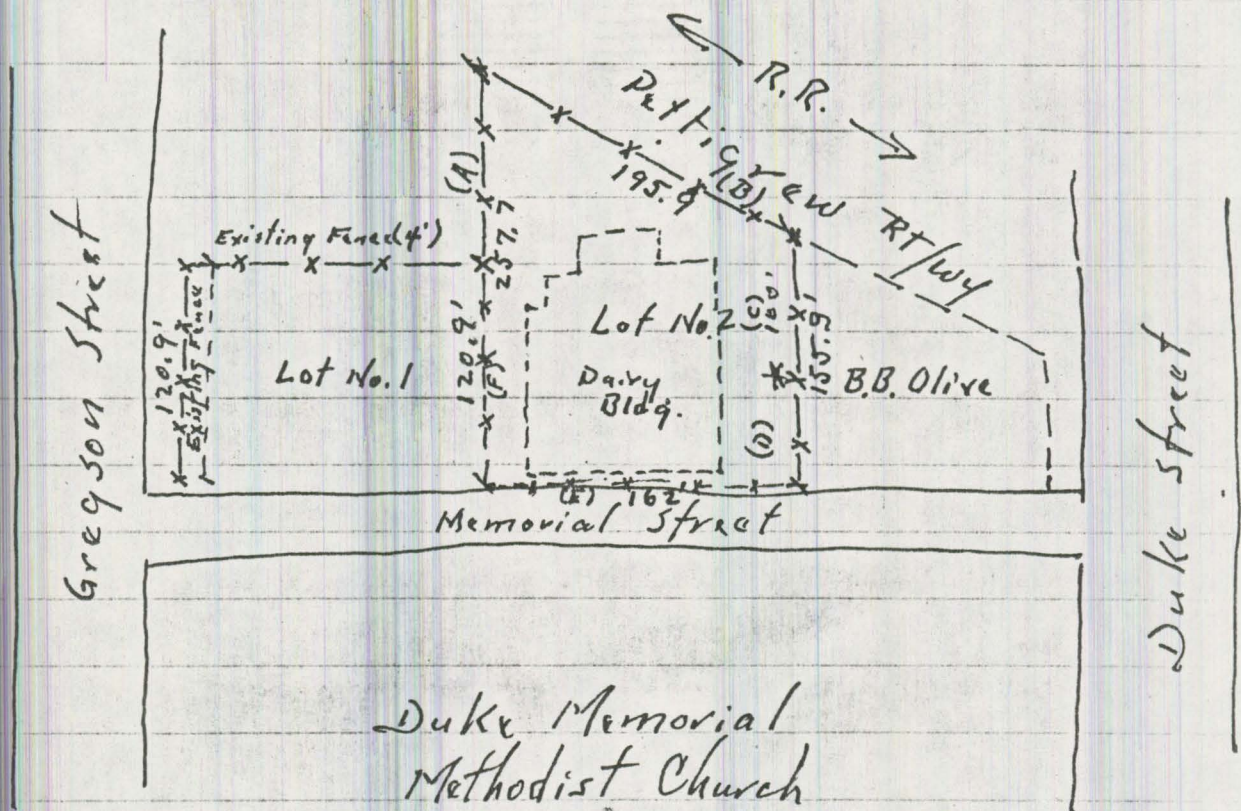 R.R.
Pettigrew RT/WY
195.9
(B)
(A)
257.7
Existing Fence (4')
Gregson Street
120.9'
Existing Fence
Lot No. 1
120.9'
(F)
Lot No. 2
Dairy
Bldg.
(C)
100'
155.9'
(D)
B.B. Olive
(E) 162'
Memorial Street
Duke Street
Duke Memorial
Methodist Church